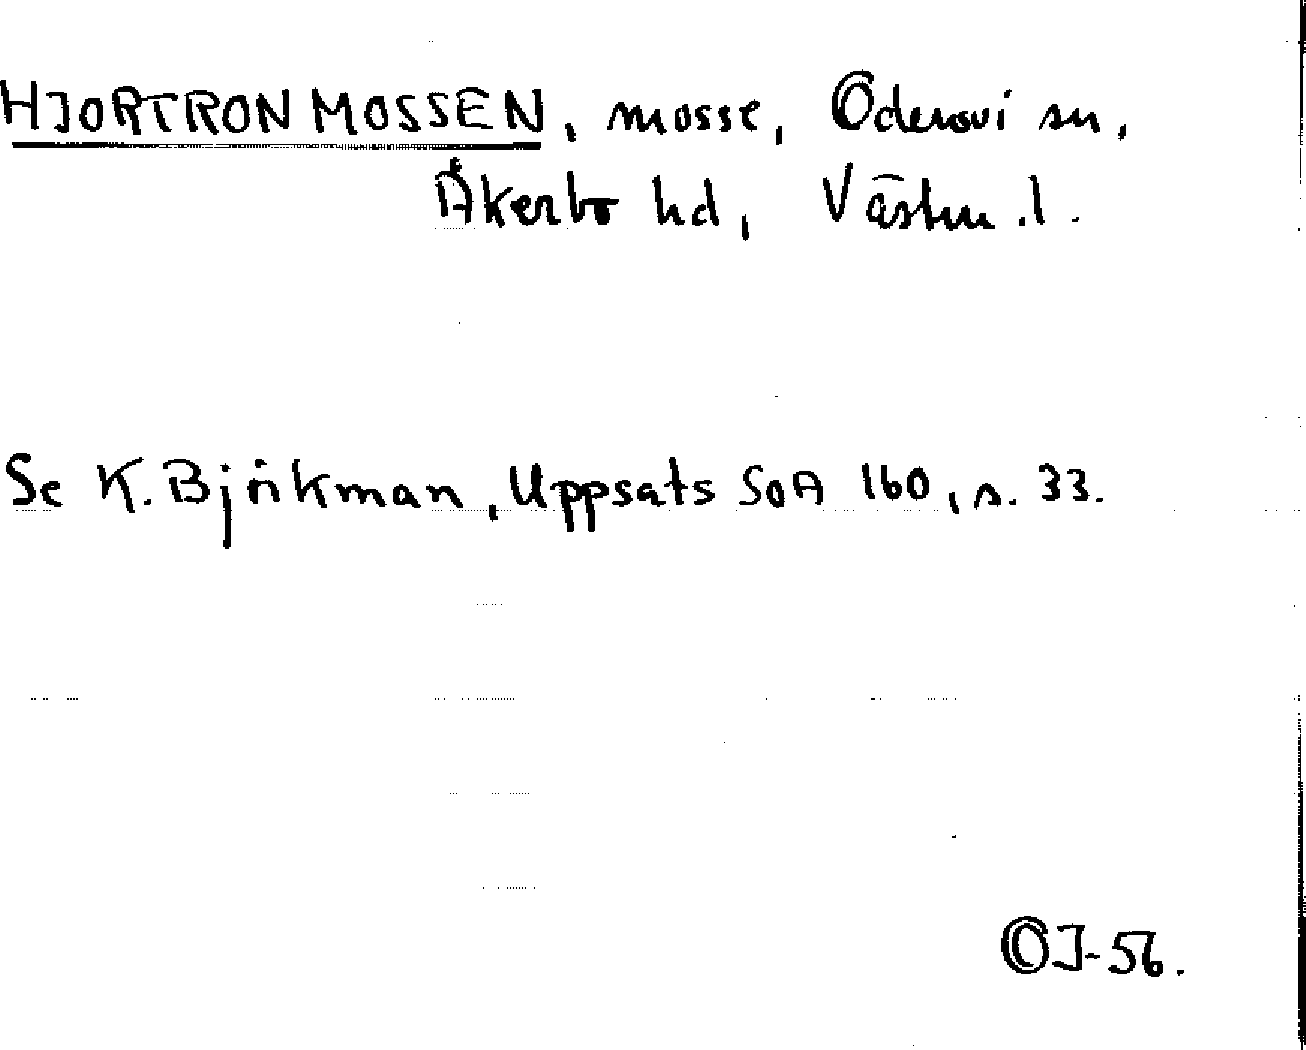 HJORTRONMOSSEN, mosse, Odensvi sn,
Åkerbo hd, Västm.l.
Se K. Björkman, Uppsats SOA 160, s. 33.
OJ-56.